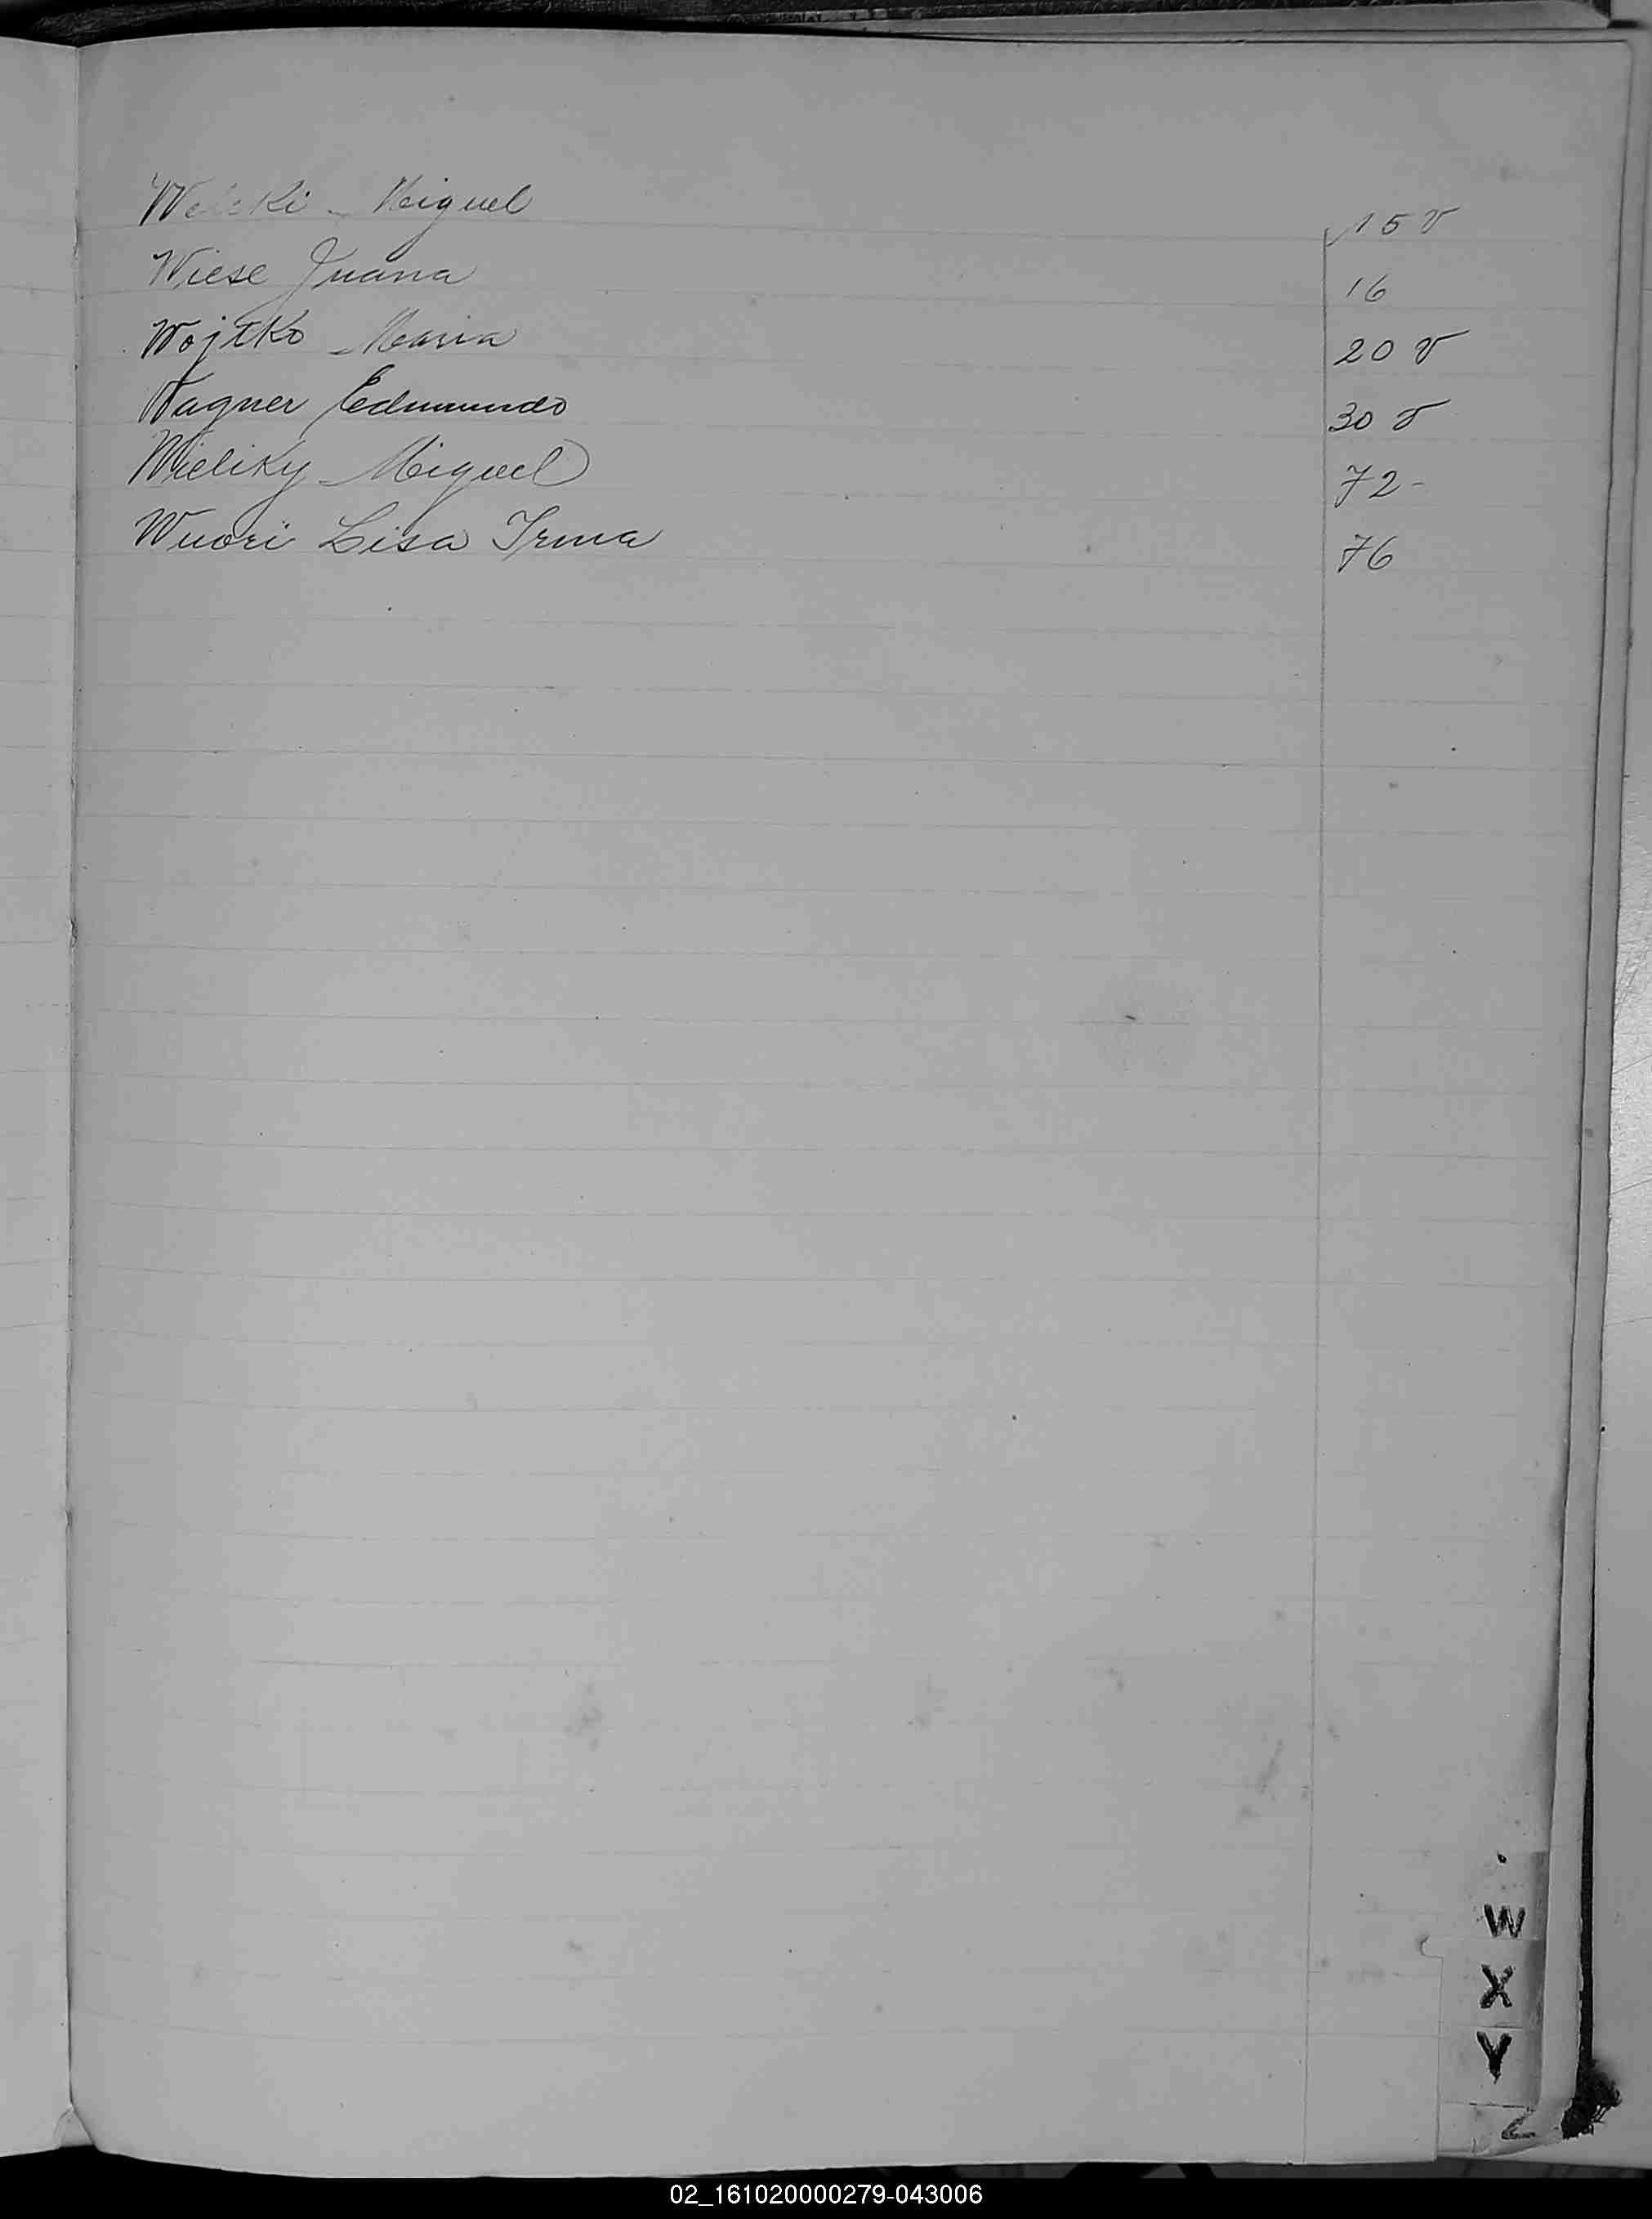 Miguel 15 v
Wiese Juana 16
Wojtko Maria 20 v
Wagner Edmundo 30 v
Wieliky Miguel 72-
Wuori Lisa Irma 76
W
X
Y
Z
02_161020000279-043006